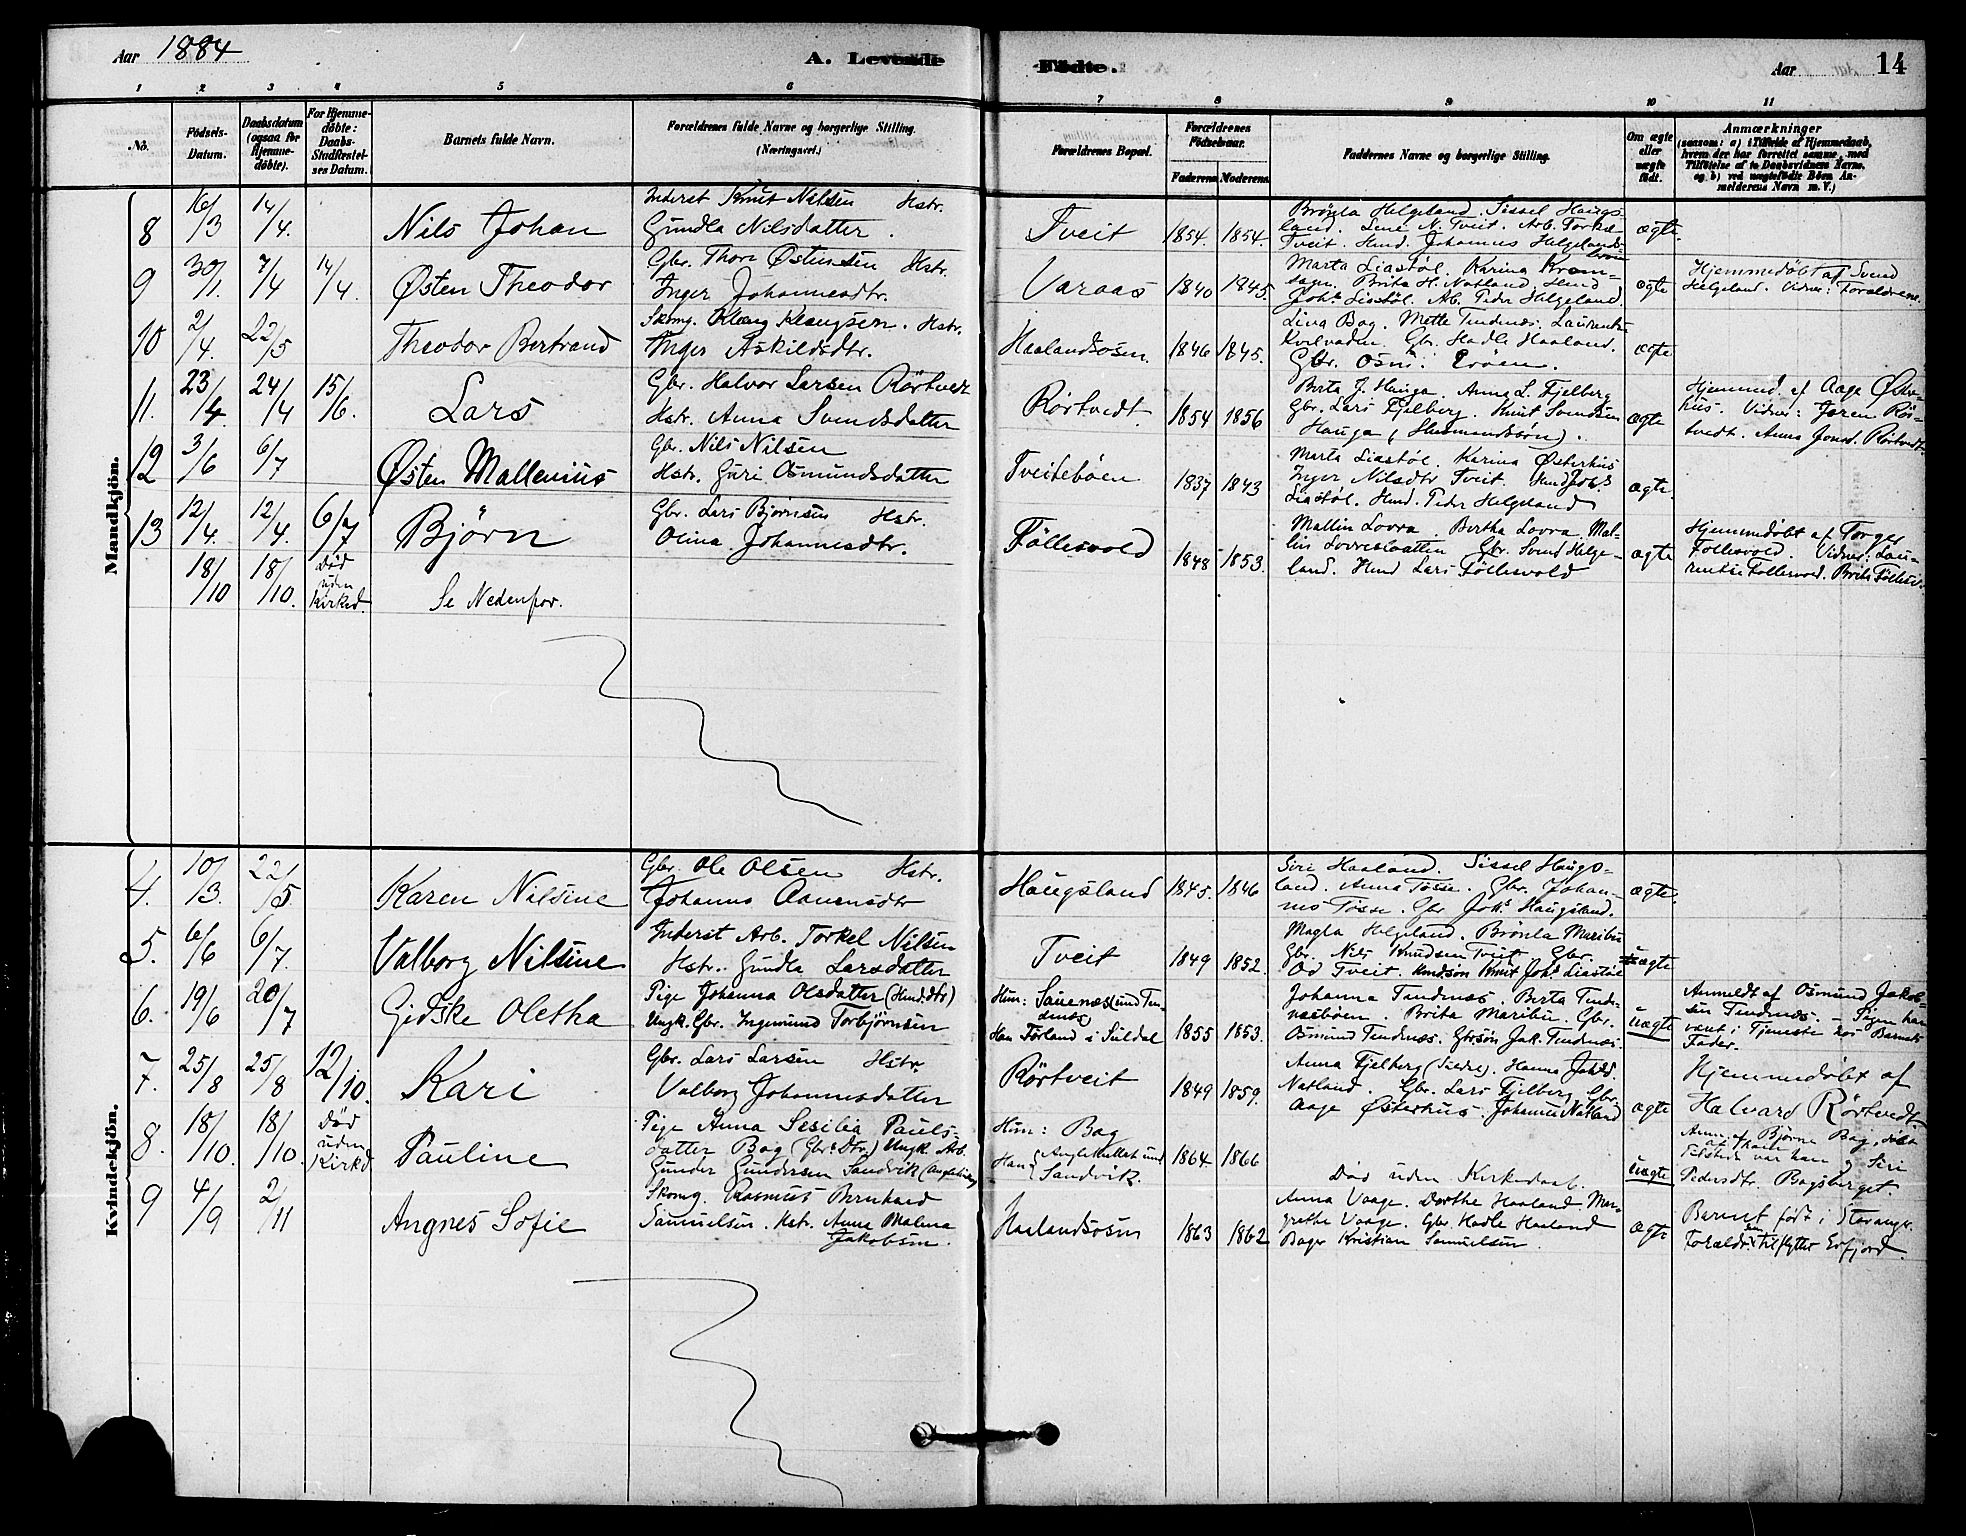 Aar 1884
A. Levende Fødte.
Aar 14
1 2 3 4 5 6 7 8 9 10 11
No.
Fødsels-Datum.
Daabsdatum (ogsaa for Hjemmedøbte).
For Hjemmedøbte: Daabs-Stadfæstelses Datum.
Barnets fulde Navn.
Forældrenes fulde Navne og borgerlige Stilling. (Næringsvei.)
Forældrenes Bopæl.
Forældrenes Fødselsaar.
Faderens Moderens
Faddernes Navne og borgerlige Stilling.
Om ægte eller uægte født.
Anmærkninger
(saasom: a) i Tilfælde af Hjemmedaab, hvem der har forrettet samme, med Tilføielse af to Daabsvidners Navne, og b) ved uægtefødte Børn Anmelderens Navn m. V.)
Mandkjøn.
8 16/3 14/4.
Nils Johan
Inderst Knut Nilsen Hstr.
Gundla Nilsdatter.
Tveit 1854. 1854.
Brønla Helgeland. Sissel Haugs-
land. Lene N. Tveit. Arb. Torkel
Tveit. Hund. Johannes Helgelands-
ægte.
9 30/1. 7/4 14/4.
Østen Theodor
Gbr. Thore Østensen Hstr.
Inger Johannesdtr.
Varaas 1840 1845.
Marta Liastøl. Karina
Brita H. Natland. Hund
Johs Liastøl. Ab. Peder Helgeland.
ægte
Hjemmedøbt af Svend
Helgeland. Vidner: Forældrene.
10 2/4. 22/5
Theodor Bertrand
Skomg. Klaug Klaugsen. Hstr.
Inger Askildsdtr.
Haalandsosen. 1846 1845.
Lina Bag. Mette Tendnæs. Laurentse
Kvilvaden. Gbr. Hadle Haaland.
Gbr. Osm. Erøen.
ægte
11. 23/4 24/4 15/6.
Lars
Gbr. Halvor Larsen Rörtvedt
Hstr. Anna Svendsdatter
Rörtvedt 1854 1856
Berta J. Hauga. Anna L. Fjelberg
Gbr. Lars Fjelberg. Knut Svendsen
Hauga (Husmandssøn).
ægte
Hjemmed. af Aage Øster-
hus. Vidner: Jøren Rör-
tvedt. Anna Jonsd. Rörtvedt.
12 3/6 6/7
Østen Mallenius
Gbr. Nils Nilsen
Hstr. Guri Osmundsdatter
Tveitebøen 1837 1843
Marta Liastøl. Karina Østerhus
Inger Nilsdtr Tveit. Hund Johs
Liastøl. Hund. Peder Helgeland
ægte.
13 12/4. 12/4. 6/7
Björn
Gbr. Lars Bjørnsen Hstr.
Olina Johannesdtr.
Föllesvold 1848 1853.
Mallin Lovra Bertha Lovra Mal-
lin Gbr. Svend Helge-
land. Hund Lars Föllesvold
ægte
Hjemmedøbt af Torger
Föllesvold. Vidner: Lau-
rentse Föllesvold. Brite Föllesv.
18/10 18/10. Død uden Kirked.
Se Nedenfor.
Kvindekjön.
4. 10/3. 22/5
Karen Nilsine
Gbr. Ole Olsen Hstr.
Johanna Aanensdtr
Haugsland 1845. 1846
Siri Haaland. Sissel Haugs-
land. Anna Tøsse. Gbr. Johan-
nes Tøsse. Gbr Johs Haugsland.
ægte.
5. 6/6 6/7.
Valborg Nilsine
Inderst Arb. Torkel Nilsen
Hstr. Gundla Larsdatter
Tveit 1849 1852.
Magla Helgeland. Brønla Maribu
Gbr. Nils Knudsen Tveit Gbr.
Od Tveit. Knut Johs Liastøl
ægte
6. 19/6 20/7
Gidske Oletha
Pige Johanna Olsdatter (Hund.dtr)
Ungk. Gbr. Ingemund Torbjørnsen
Hun: Sauenæs (und Ten-
dnæs)
Han Førland i Suldal 1855 1853.
Johanna Tendnæs. Berta Tend-
næsbøen. Brita Maribu. Gbr.
Osmund Tendnæs. Gbrsøn Jak. Tendnæs.
uægte
Anmeldt af Osmund Jakob-
sen Tendnæs. – Pigen har
været i Tjeneste hos Barnets
Fader.
7. 25/8 25/8 12/10.
Kari
Gbr. Lars Larsen Hstr.
Valborg Johannesdatter
Rörtveit 1849 1859.
Anna Fjelberg Hanna Johsd.
Natland. Gbr. Lars Fjelberg. Gbr.
Aage Østerhus. Johannes Natland
ægte
Hjemmedøbt af
Halvard Rörtvedt
8. 18/10. 18/10. Død uden Kirked
Pauline
Pige Anna Sesilia Pauls-
datter Bag (Gbrs Dtr.) Ungk. Arb.
Gunder Gundersen Sandvik
Hun: Bag
Han Sandvik. 1864 1866
Død uden Kirkedaab.
uægte
Anm. af Bjørne Bag,
Tilstede var han og Siri
Pedersdtr. Bagsberget.
9 4/9 2/11
Angnes Sofie
Skomg. Rasmus Bernhard
Samuelsen. Hstr. Anna Malena
Jakobsen.
Haalandsosen 1863 1862
Anna Vaage. Dorthe Haaland Mar-
grethe Vaage. Gbr. Hadle Haaland
Bager Kristian Samuelsen.
ægte
Barnet født i Stavanger.
Forældrene tilflyttet Erfjord.